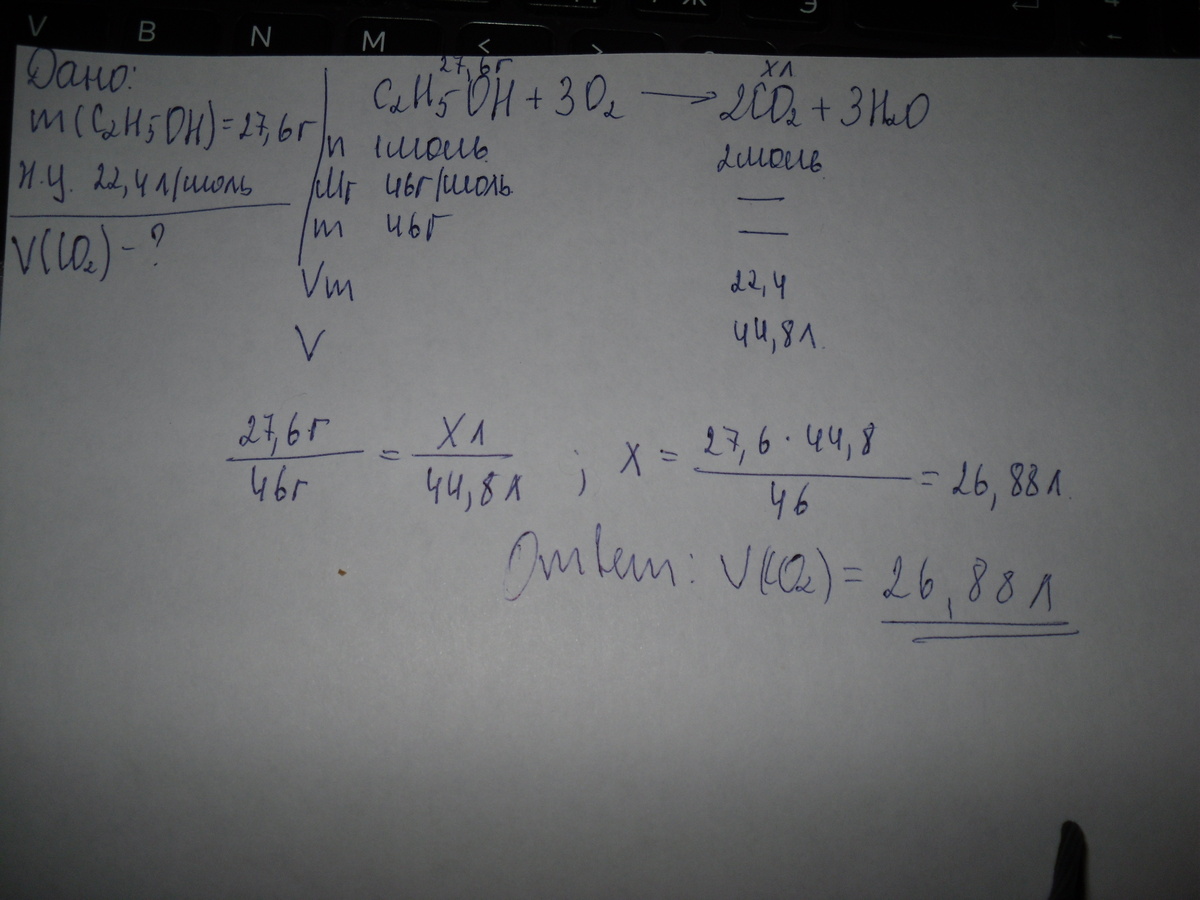 V B N M < >
Дано:
m(C₂H₅OH)=27,6г
н.у. 22,4л/моль
V(CO₂)-?
27,6г хл
C₂H₅OH + 3O₂ → 2CO₂ + 3H₂O
n 1моль 2моль
Mr 46г/моль —
m 46г —
Vm 22,4
V 44,8л.
27,6г / 46г = Xл / 44,8л ; X = 27,6 · 44,8 / 46 = 26,88л.
Ответ: V(CO₂) = 26,88л